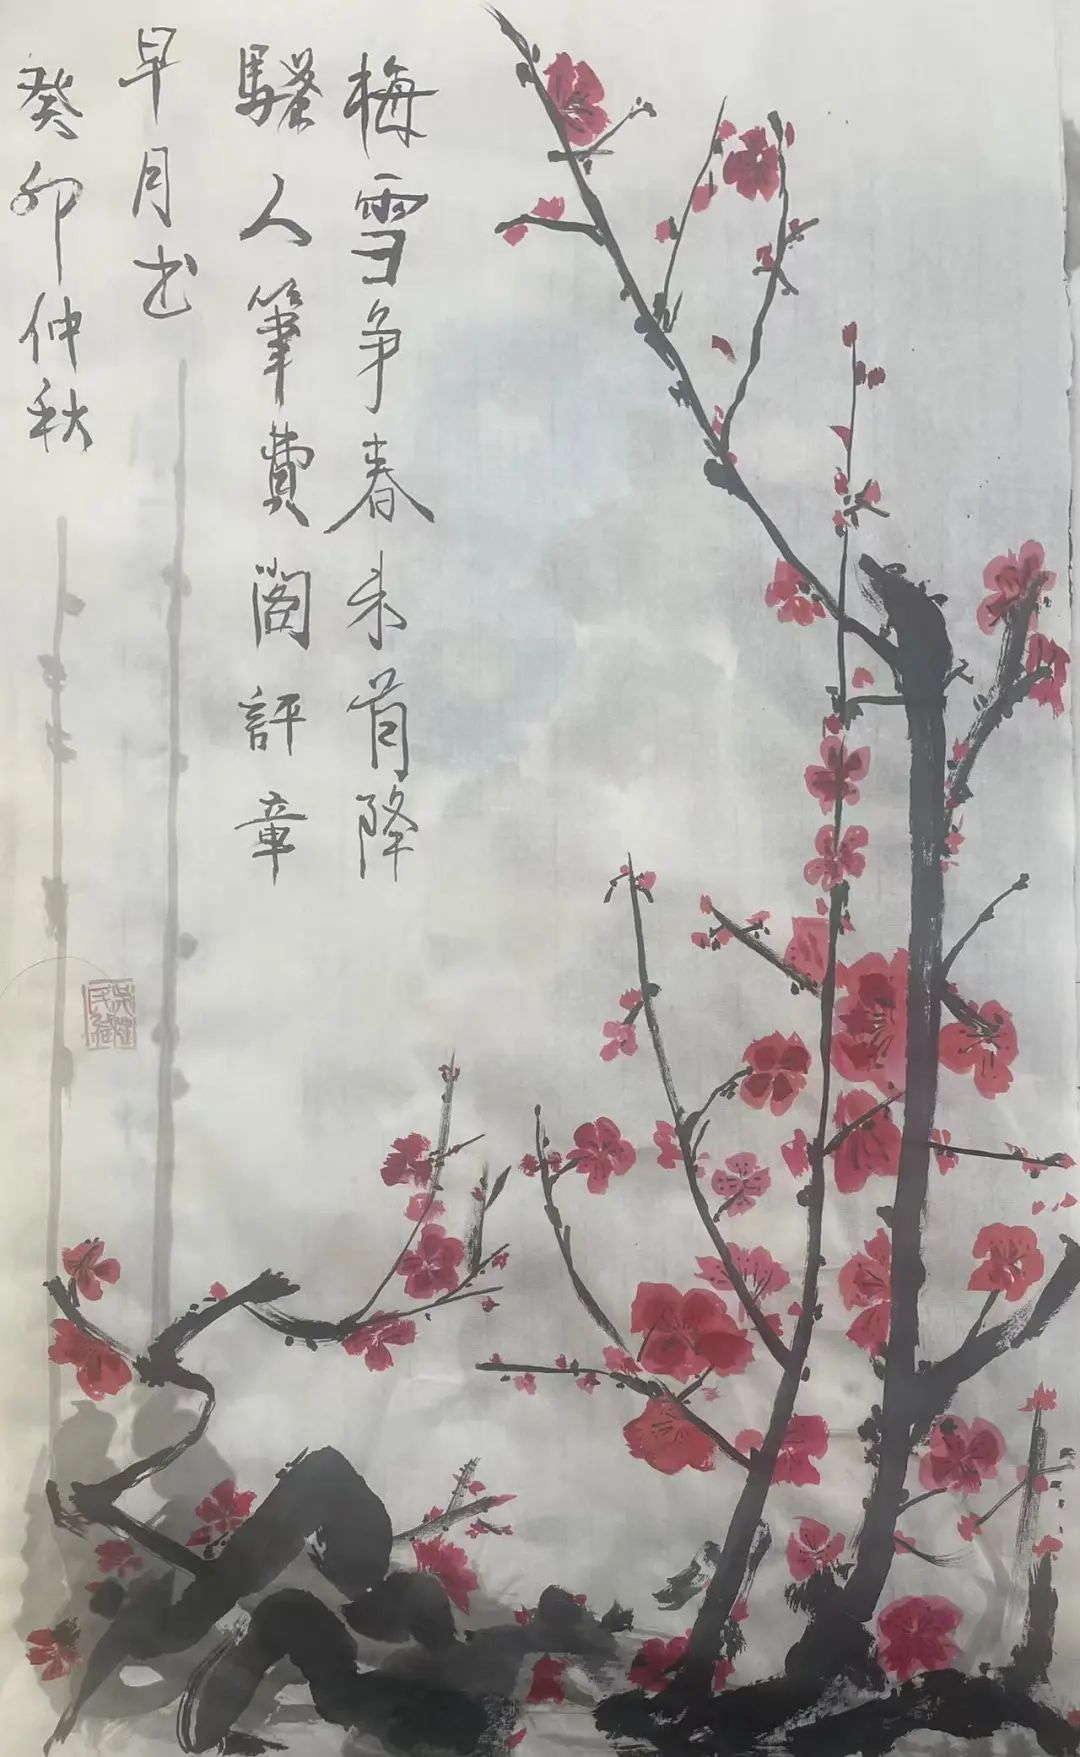 梅雪争春未肯降
騷人筆費閣評章
早月书
癸卯仲秋